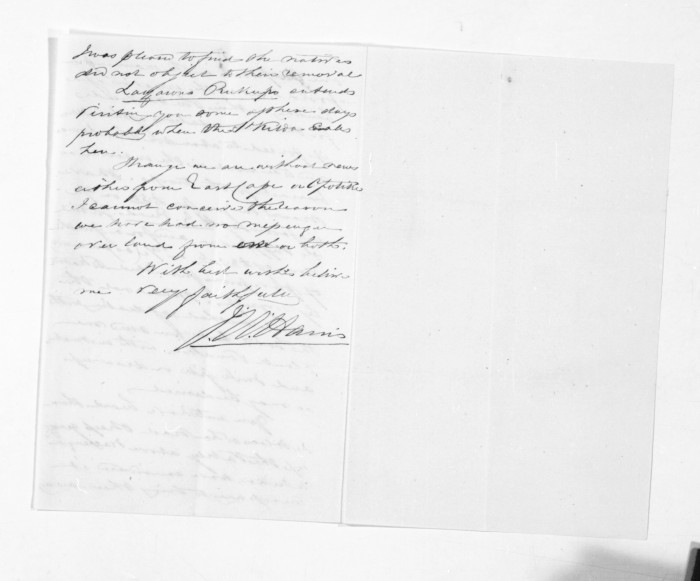 I was pleased to find the natives
did not object to their removal
Lazarus Rukupo intends
visiting you some of these days
probably when the St Kilda calls
here.
Strange we are without news
either from East Cape or Opotiki
I cannot conceive the reason
we have had no messenger
over land from one or both.
With best wishes believe
me very faithfully
J. W. Harris